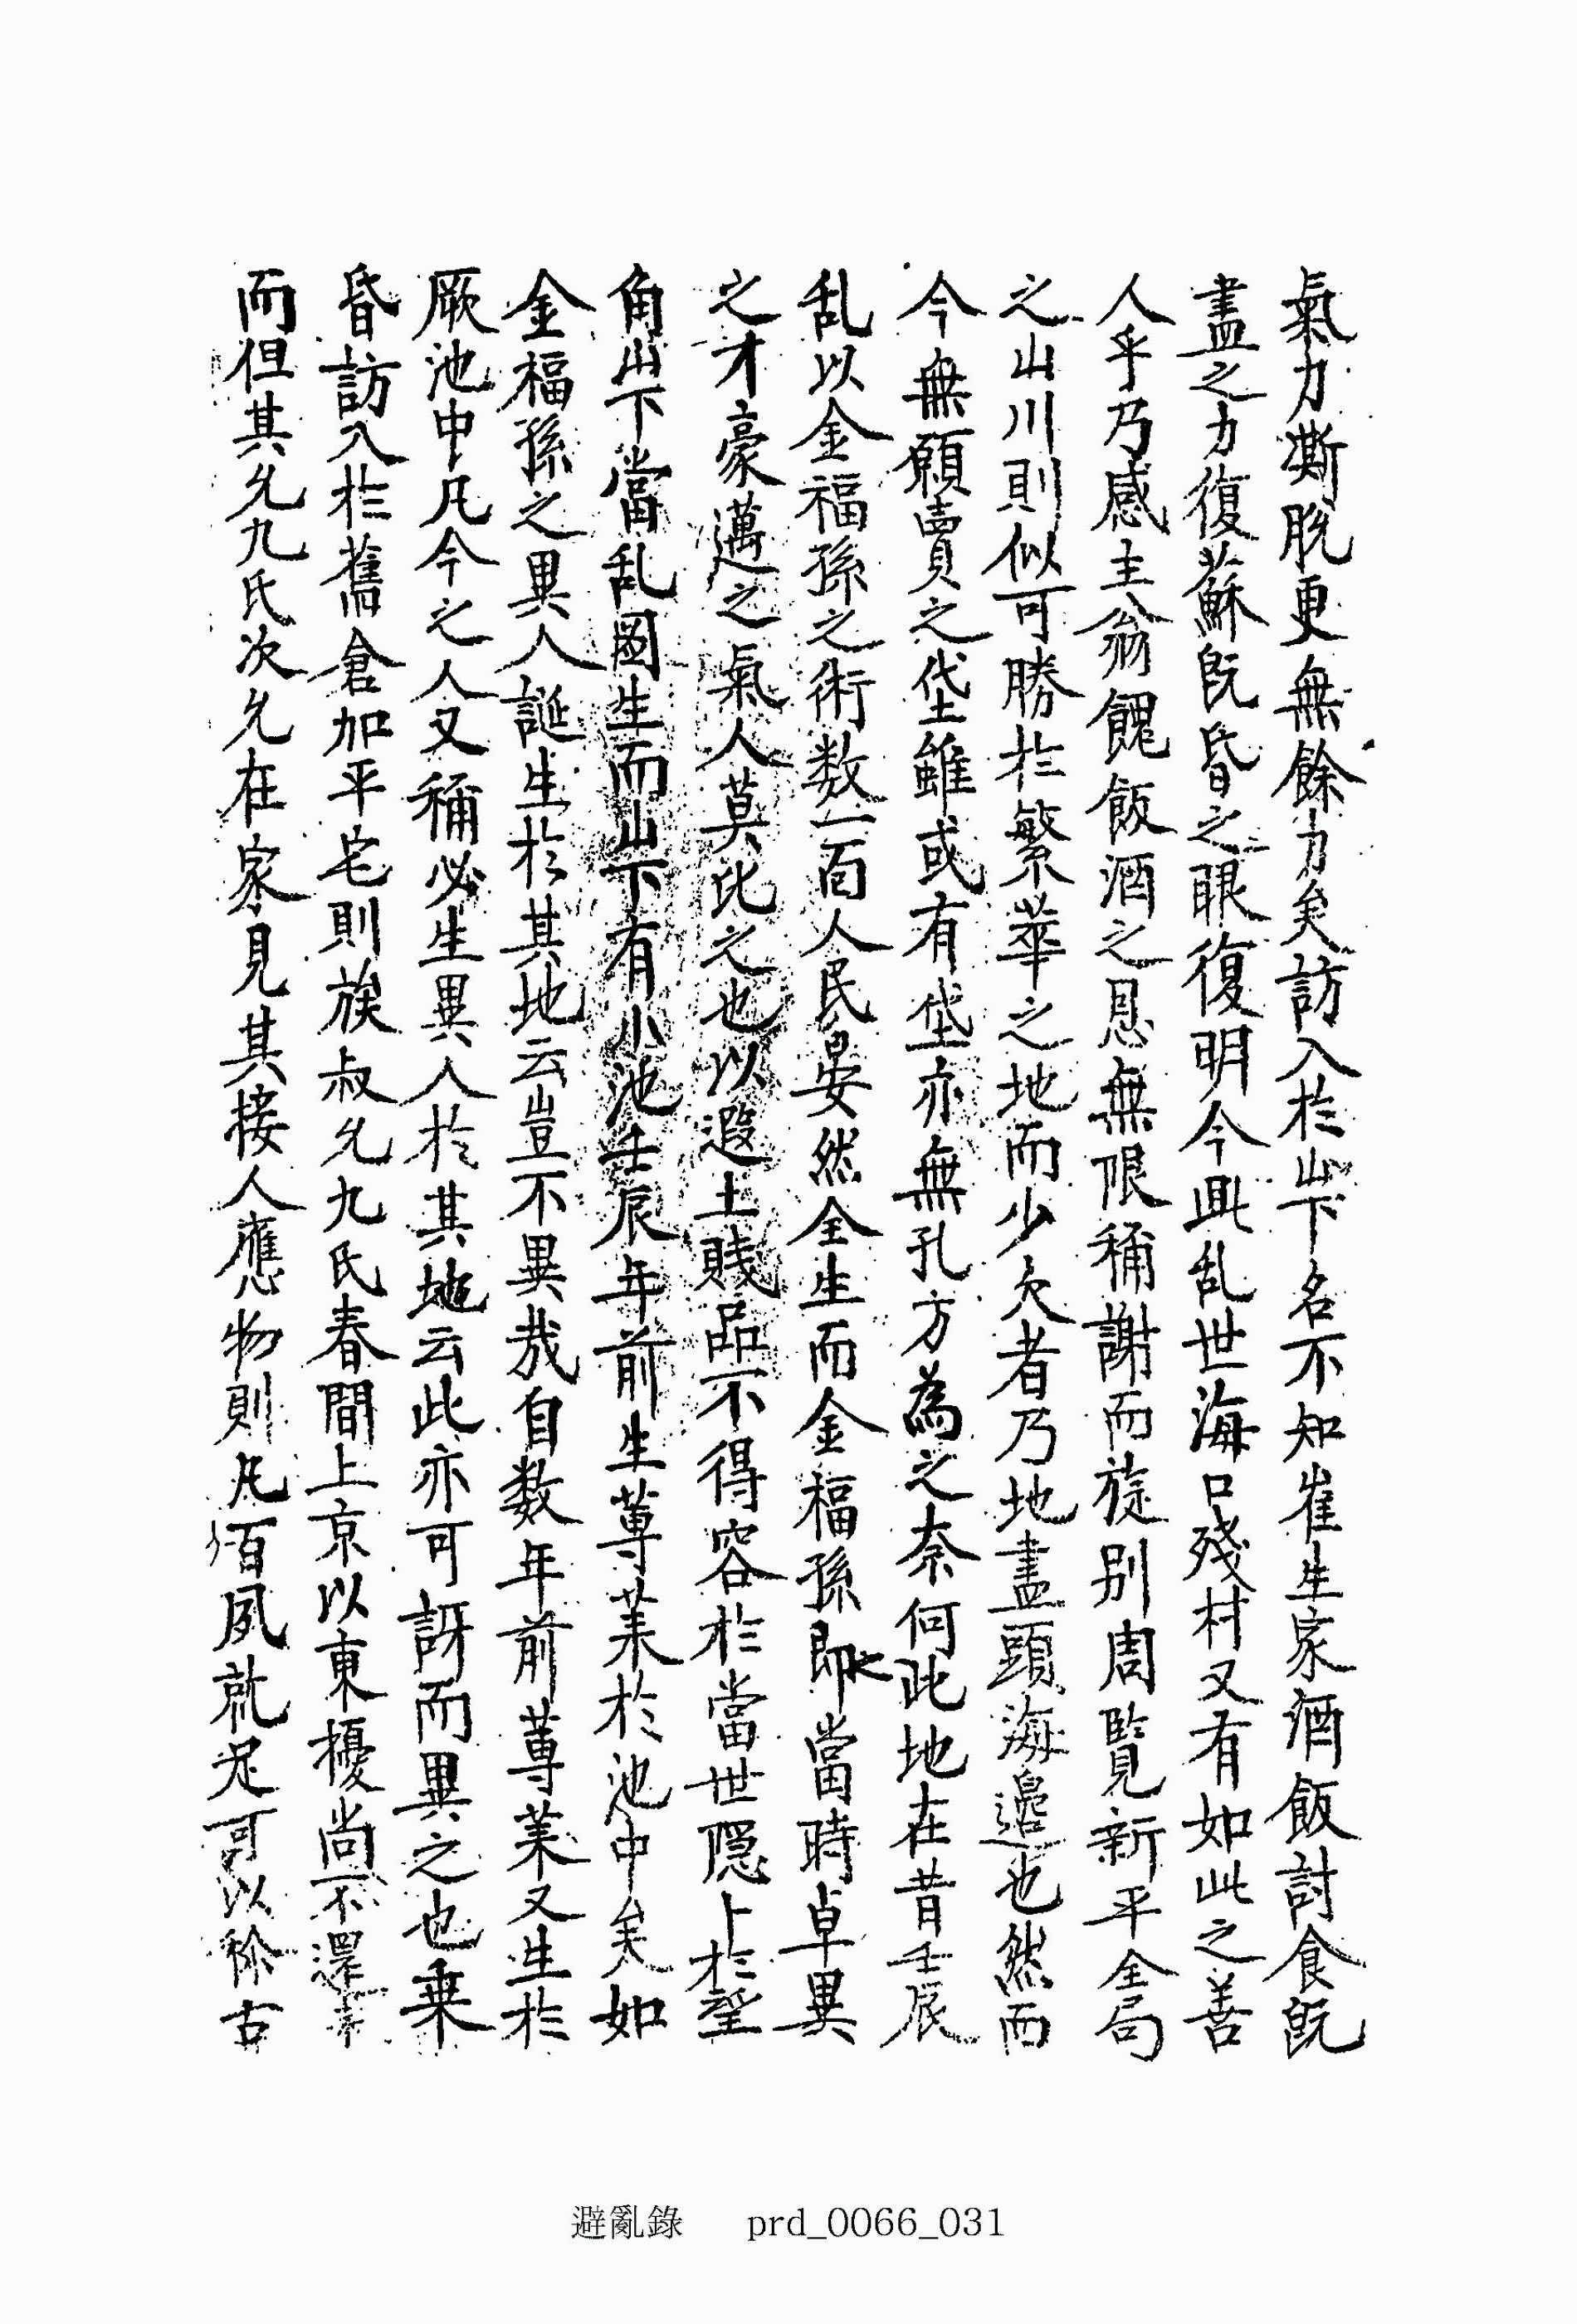 氣力澌脫更無餘力矣訪入於山下名不知崔生家酒飯討食旣
盡之力復蘇旣昏之眼復明今此乱世海口殘村又有如此之善
人乎乃感主翁餽飯酒之恩無限稱謝而旋别周覽新平全局
之山川則似可勝於繁華之地而少欠者乃地盡頭海邉也然而
今無願賣之垈雖或有垈亦無孔方為之奈何此地在昔壬辰
乱以金福孫之術数一面人民晏然全生而金福孫即當時卓異
之才豪邁之氣人莫比之也以遐土賤品不得容於當世隠卜於望
角山下當乱图生而山下有小池壬辰年前生蓴菜於池中矣如
金福孫之異人誕生於其地云豈不異哉自数年前蓴菜又生於
厥池中凡今之人又稱必生異人於其地云此亦可訝而異之也乗
昏訪入於舊倉加平宅則族叔允九氏春間上京以東擾尚不還
而但其允九氏次允在家見其接人應物則凡百夙就足可以称古